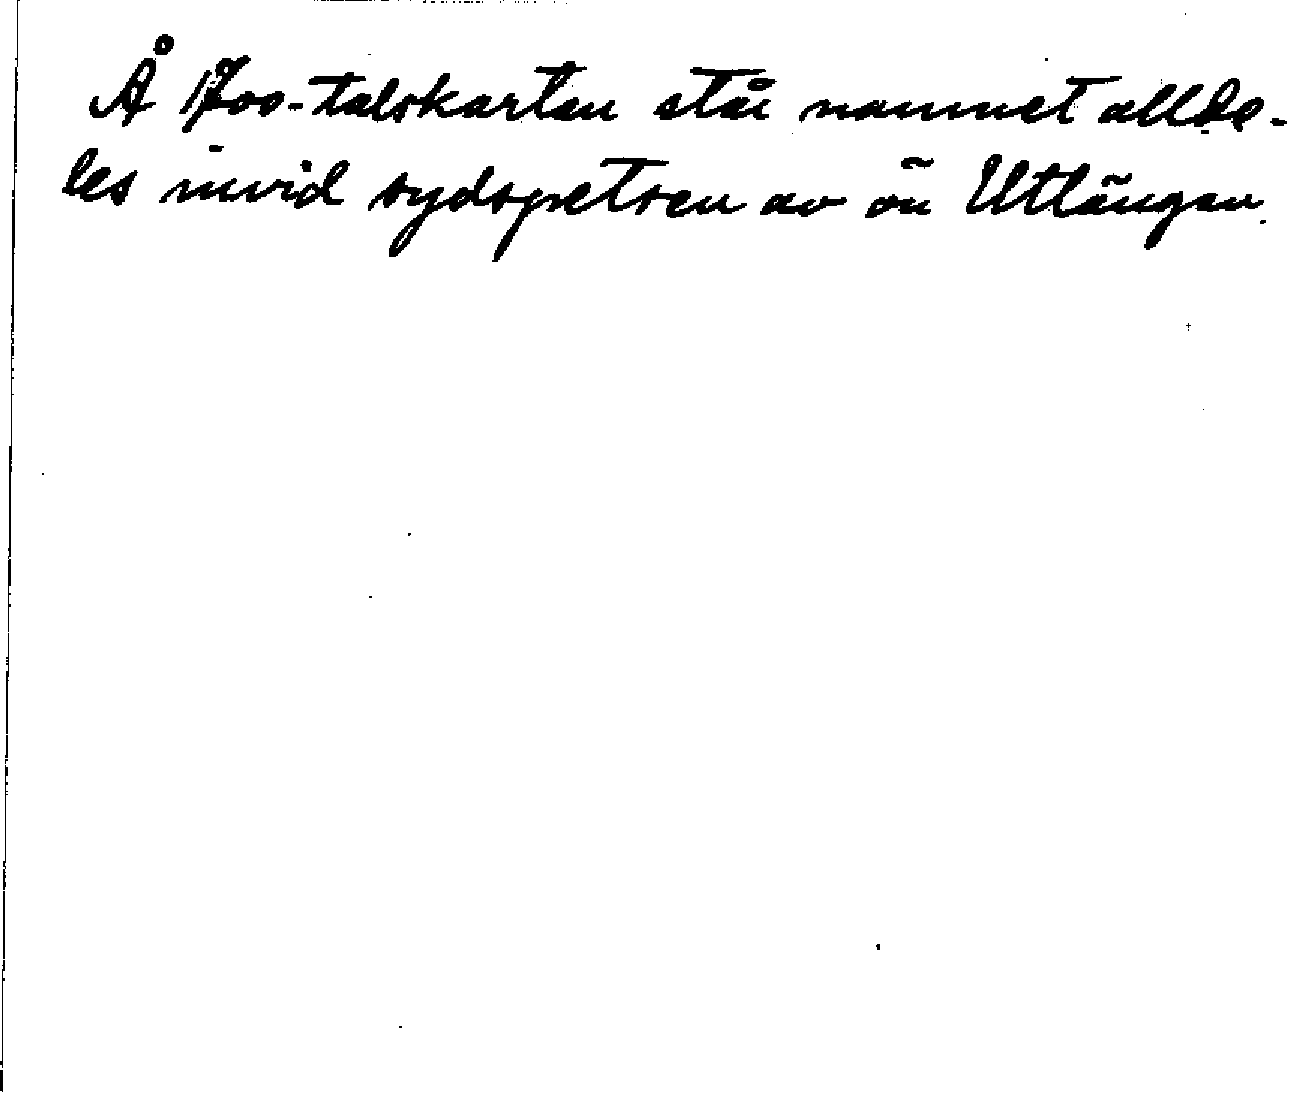 Å 1700-talskartan står namnet allde-
les invid sydspetsen av ön Utlängan.